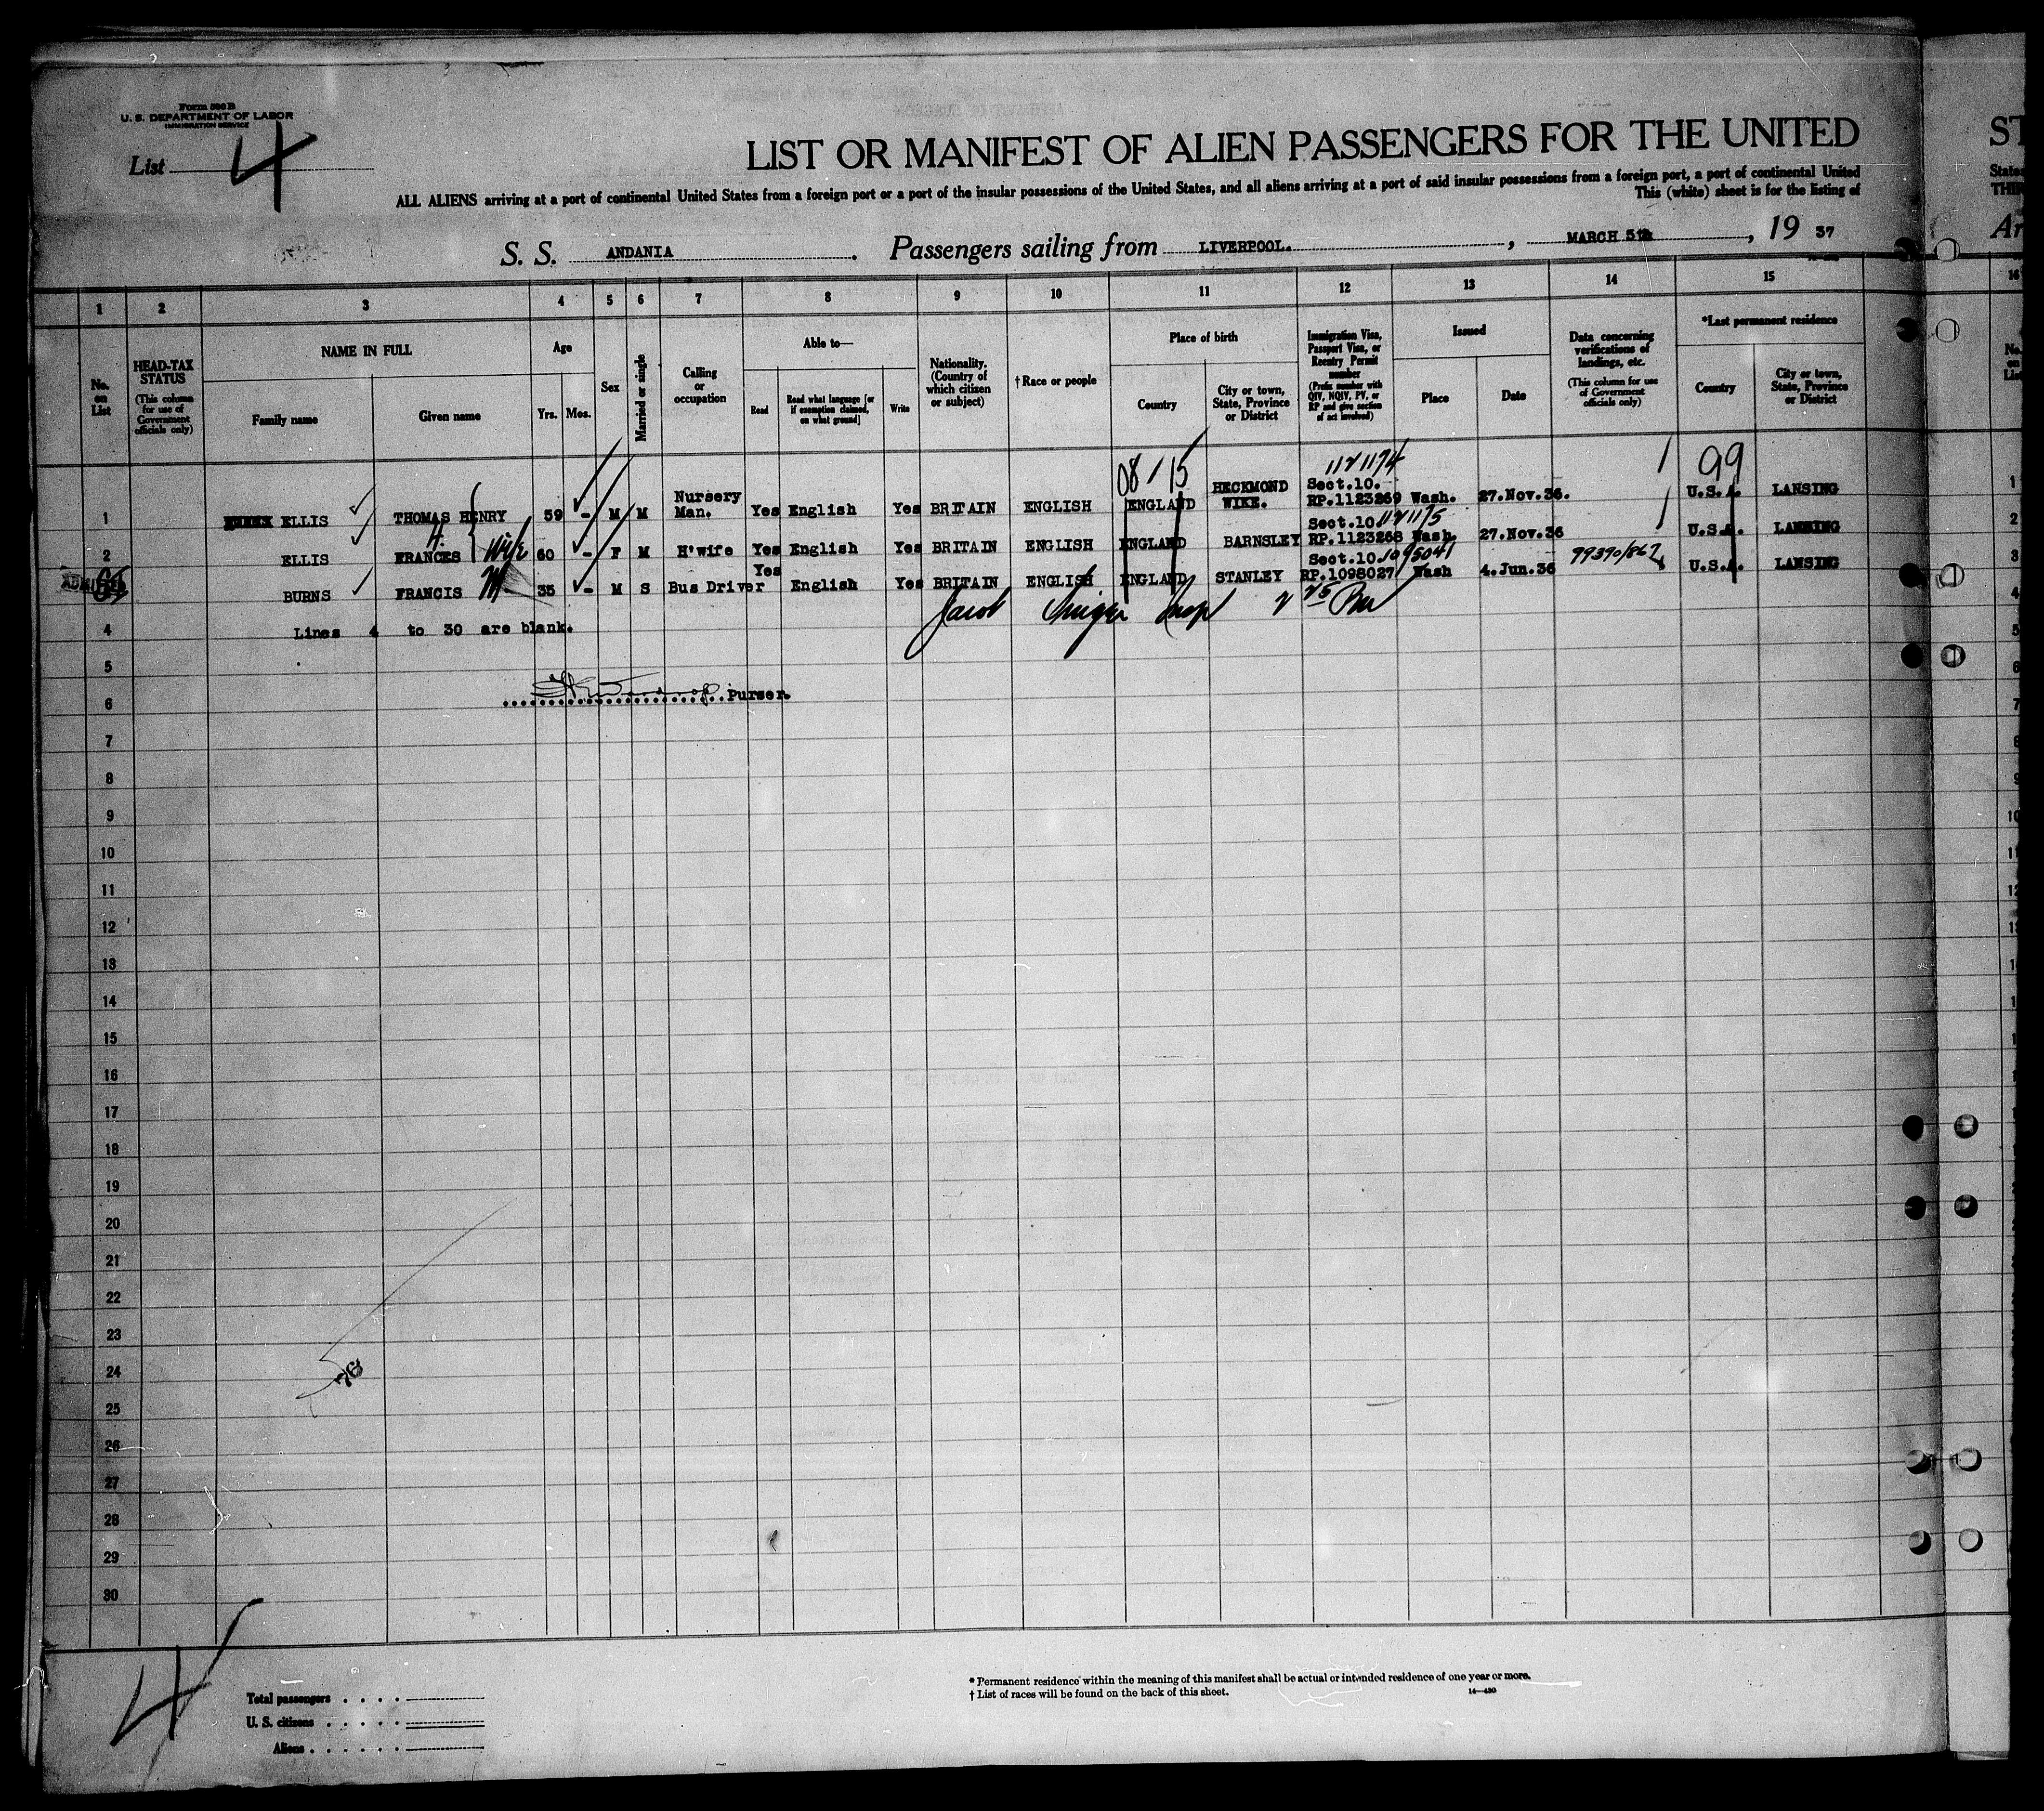 Form 500 B
U. S. DEPARTMENT OF LABOR
IMMIGRATION SERVICE
List 4
LIST OR MANIFEST OF ALIEN PASSENGERS FOR THE UNITED
ST
ALL ALIENS arriving at a port of continental United States from a foreign port or a port of the insular possessions of the United States, and all aliens arriving at a port of said insular possessions from a foreign port, a port of continental United
States
This (white) sheet is for the listing of
S. S. ANDANIA. Passengers sailing from LIVERPOOL. , MARCH , 19 37
Ar
1 2 3 4 5 6 7 8 9 10 11 12 13 14 15 16
No. on List
HEAD-TAX STATUS (This column for use of Government officials only)
NAME IN FULL
Family name Given name
Age
Yrs. Mos.
Sex
Married or single
Calling or occupation
Able to—
Read
Read what language [or if exemption claimed, on what ground]
Write
Nationality. (Country of which citizen or subject)
†Race or people
Place of birth
Country
City or town, State, Province or District
Immigration Visa, Passport Visa, or Reentry Permit number
(Prefix number with QIV, NQIV, PV, or RP and give section of act involved)
Issued
Place Date
Data concerning verifications of landings, etc.
(This column for use of Government officials only)
*Last permanent residence
Country
City or town, State, Province or District
No. on List
08 / 15 1121174 99
1 ELLIS THOMAS HENRY 59 - M M Nursery Man. Yes English Yes BRITAIN ENGLISH ENGLAND HECKMOND WIKE. Sect.10. RP.1123269 Wash. 27.Nov.36. U.S.A. LANSING 1
2 ELLIS FRANCES H. Wife 60 - F M H'wife Yes English Yes BRITAIN ENGLISH ENGLAND BARNSLEY Sect.10 1121175 RP.1123268 Wash. 27.Nov.36 U.S.A. LANSING 2
ADMITTED BURNS FRANCIS M 35 - M S Bus Driver Yes English Yes BRITAIN ENGLISH ENGLAND STANLEY Sect.10. 1095041 RP.1098027 Wash 4.Jun.36 99390/867 U.S.A. LANSING 3
4 Lines 4 to 30 are blank. Jacob 4
5
6 Purser.
7
8
9
10
11
12
13
14
15
16
17
18
19
20
21
22
23
24
25
26
27
28
29
30
4
Total passengers
U. S. citizens
Aliens
* Permanent residence within the meaning of this manifest shall be actual or intended residence of one year or more.
† List of races will be found on the back of this sheet.
14—430